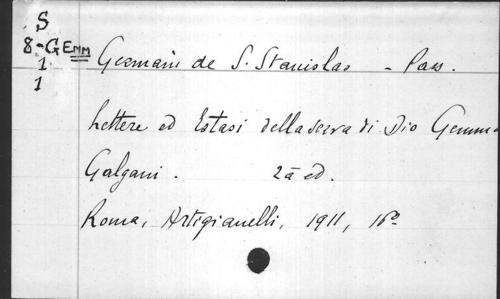 S
8-GEMM
1
1
Germain de S. Stanislas - Pass.
Lettere ed Estasi della serva di Dio Gemma
Galgani. 2ª ed.
Roma, Artigianelli, 1911, 16º